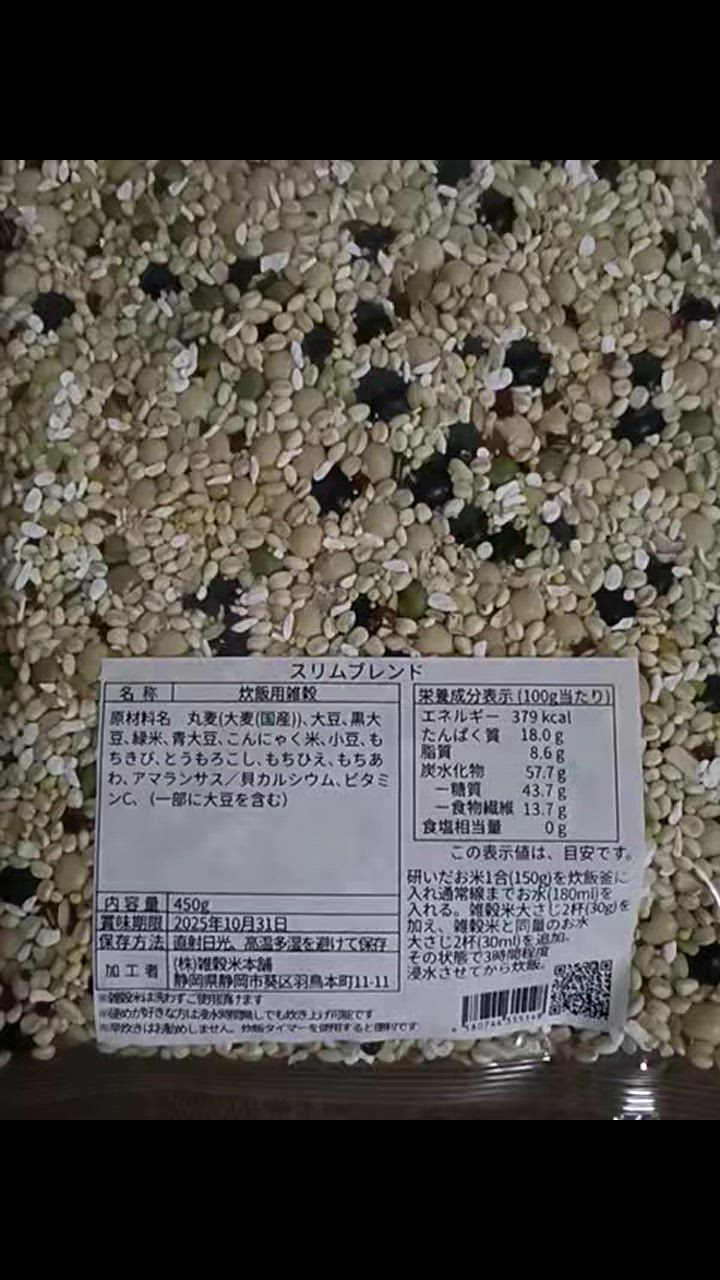 スリムブレンド
名 称 炊飯用雑穀
原材料名 丸麦(大麦(国産))、大豆、黒大
豆、緑米、青大豆、こんにゃく米、小豆、も
ちきび、とうもろこし、もちひえ、もちあ
わ、アマランサス／貝カルシウム、ビタミ
ンC、（一部に大豆を含む）
内 容 量 450g
賞味期限 2025年10月31日
保存方法 直射日光、高温多湿を避けて保存
加 工 者 (株)雑穀米本舗
静岡県静岡市葵区羽鳥本町11-11
※雑穀米は洗わずご使用頂けます
※硬めが好きな方は浸水時間無しでも炊き上げ可能です
※早炊きはお勧めしません。炊飯タイマーを使用すると便利です
栄養成分表示 (100g当たり)
エネルギー 379 kcal
たんぱく質 18.0 g
脂質 8.6 g
炭水化物 57.7 g
－糖質 43.7 g
－食物繊維 13.7 g
食塩相当量 0 g
この表示値は、目安です。
研いだお米1合(150g)を炊飯釜に
入れ通常線までお水(180ml)を
入れる。雑穀米大さじ2杯(30g)を
加え、雑穀米と同量のお水
大さじ2杯(30ml)を追加。
その状態で3時間程度
浸水させてから炊飯。